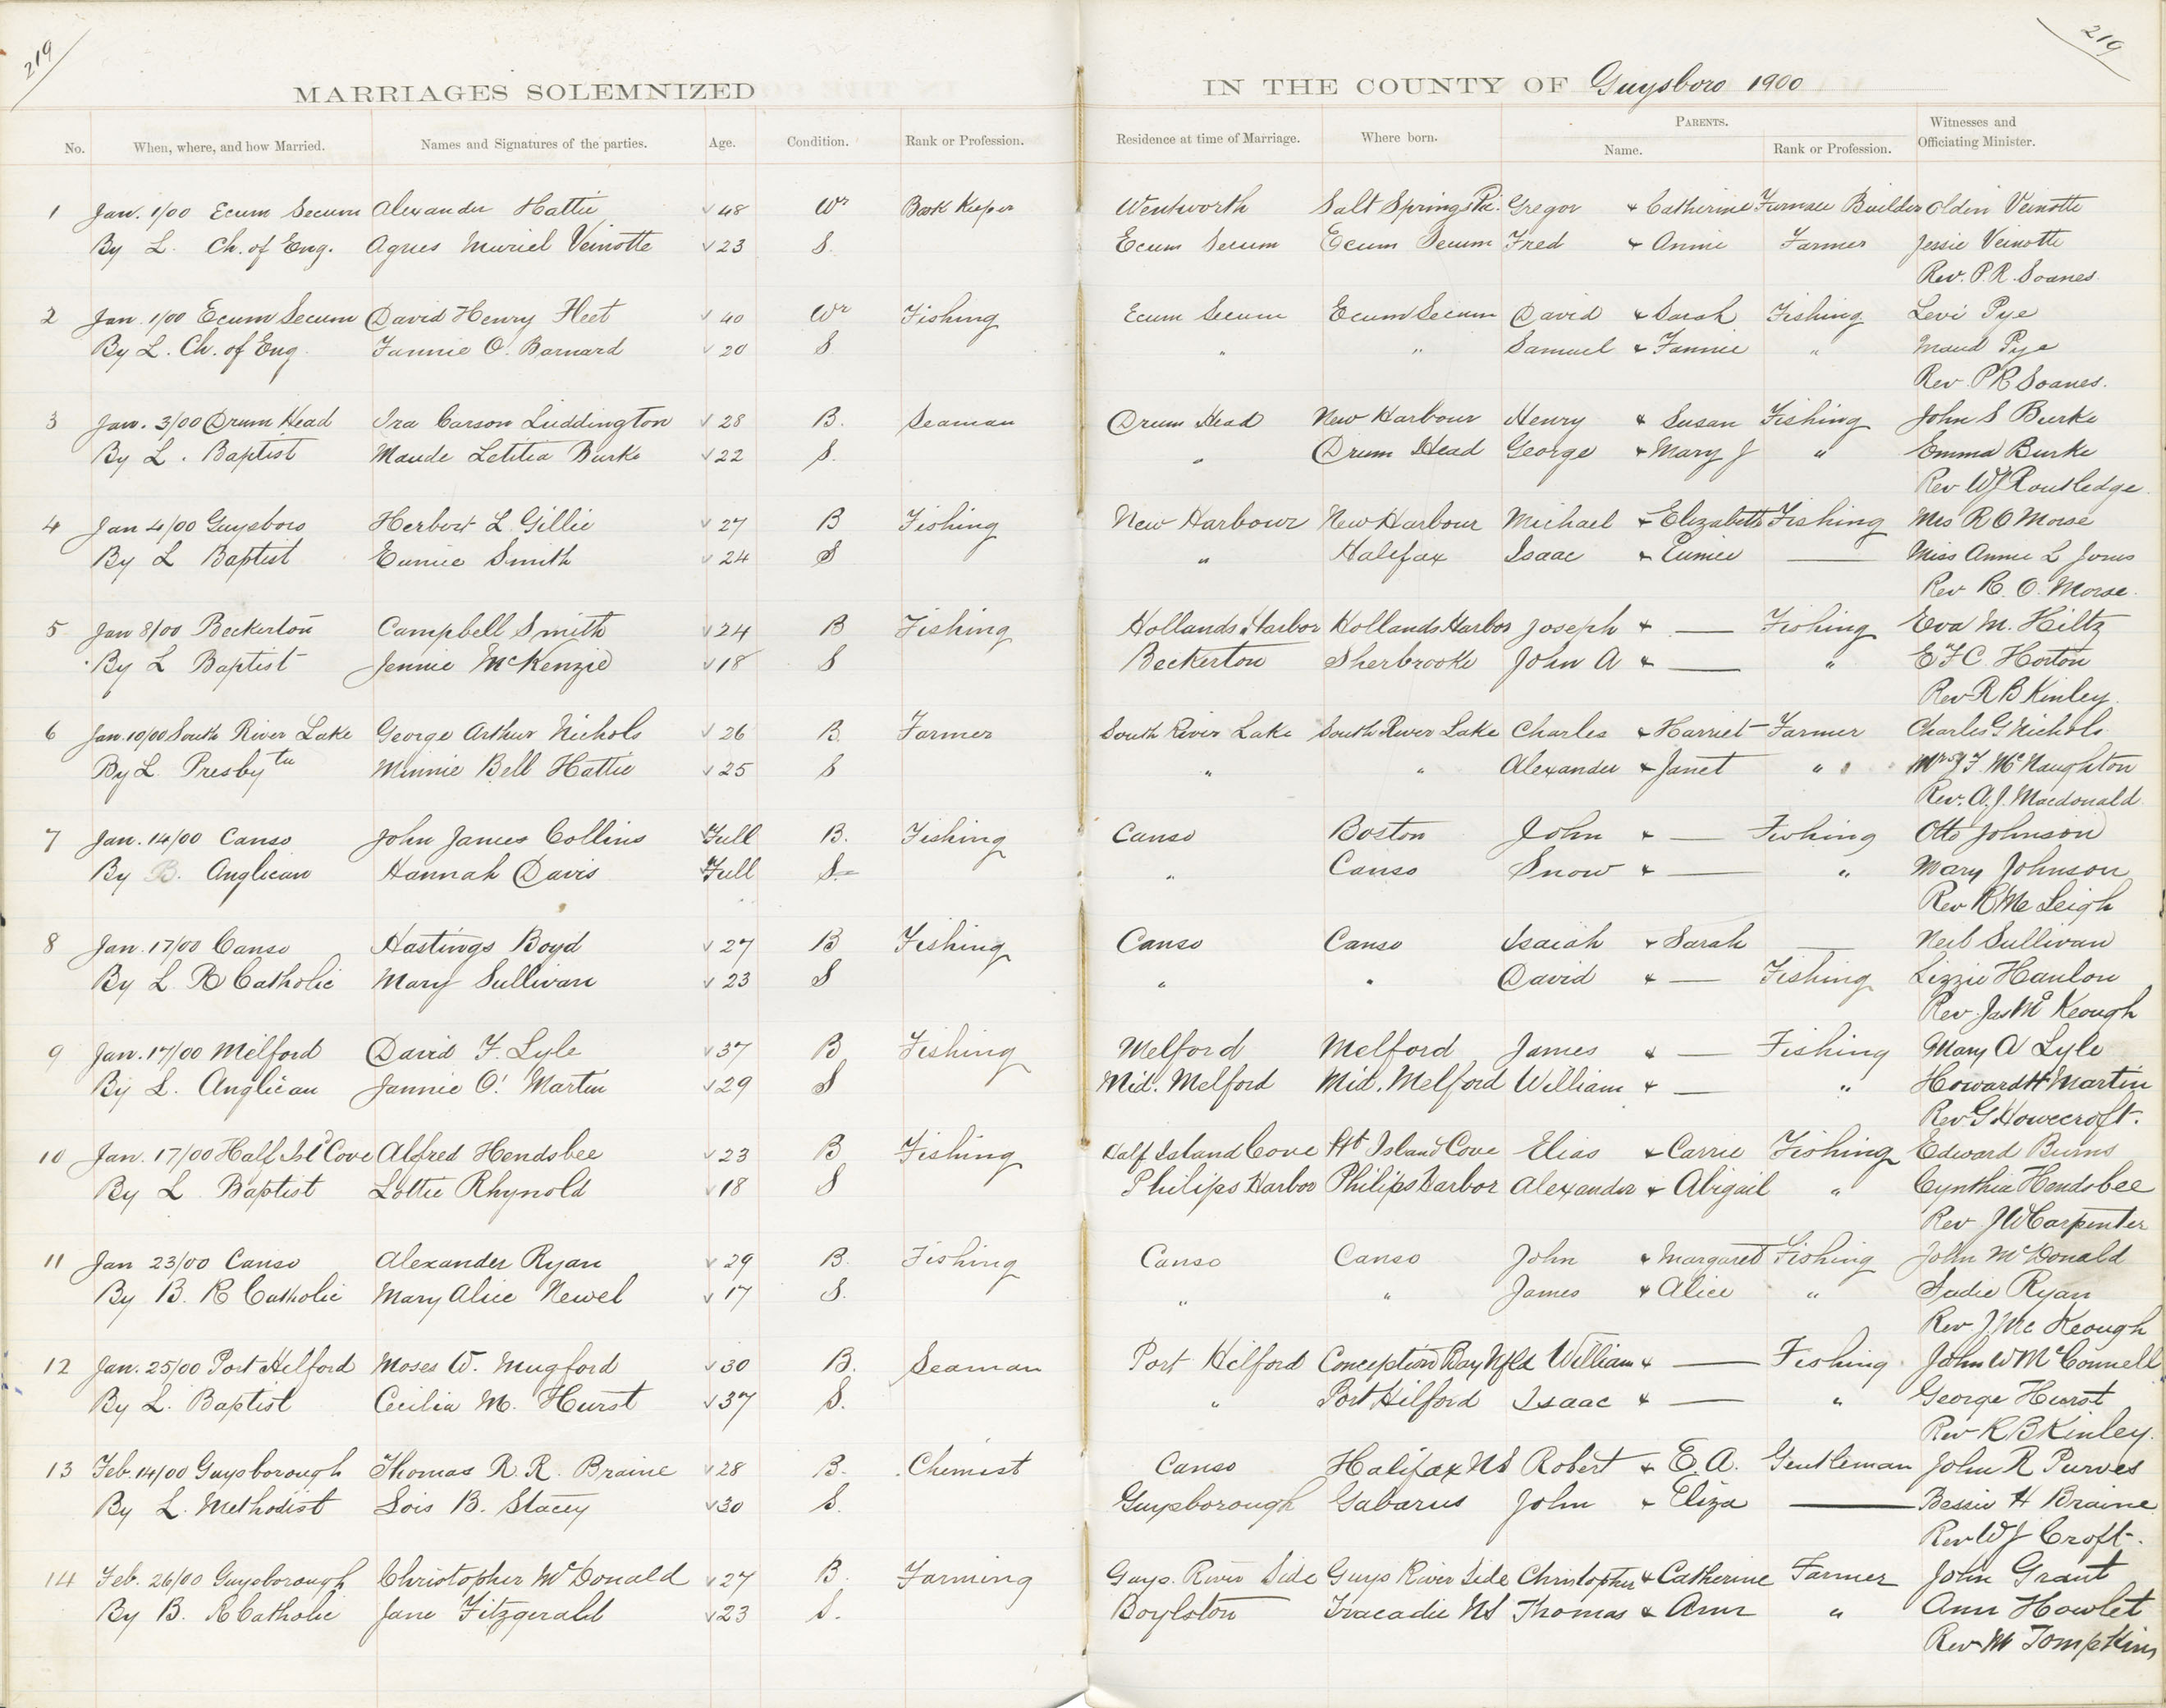 219
219
MARRIAGES SOLEMNIZED IN THE COUNTY OF Guysboro 1900
No. When, where, and how Married. Names and Signatures of the parties. Age. Condition. Rank or Profession. Residence at time of Marriage. Where born. PARENTS. Name. Rank or Profession. Witnesses and Officiating Minister.
1 Jan. 1/00 Ecum Secum Alexander Hattie √ 48 Wr Book Keeper Wentworth Salt Springs Pic. Gregor & Catherine Furnace Builder Olden Veinotte
By L. Ch. of Eng. Agnes Muriel Veinotte √ 23 S. Ecum Secum Ecum Secum Fred & Annie Farmer Jessie Veinotte
Rev. P.R. Soanes.
2 Jan. 1/00 Ecum Secum David Henry Fleet √ 40 Wr Fishing Ecum Secum Ecum Secum David & Sarah Fishing Levi Pye
By L. Ch. of Eng. Fannie O. Barnard √ 20 S " " Samuel & Fannie " Maud Pye
Rev. P R Soanes.
3 Jan. 3/00 Drum Head Ira Carson Luddington √ 28 B. Seaman Drum Head New Harbour Henry & Susan Fishing John S Burke
By L. Baptist Maude Letitia Burke √ 22 S. " Drum Head George & Mary J " Emma Burke
Rev WJ Routledge.
4 Jan 4/00 Guysboro Herbert L Gillie √ 27 B Fishing New Harbour New Harbour Michael & Elizabeth Fishing Mrs R O Morse
By L Baptist Eunice Smith √ 24 S " Halifax Isaac & Eunice — Miss Annie L Jones
Rev R. O. Morse.
5 Jan 8/00 Beckerton Campbell Smith √ 24 B Fishing Hollands Harbor Hollands Harbor Joseph & — Fishing Eva M. Hiltz
By L Baptist Jennie McKenzie √ 18 S Beckerton Sherbrooke John A & — " E F C Horton
Rev R B Kinley
6 Jan. 10/00 South River Lake George Arthur Nichols √ 26 B. Farmer South River Lake South River Lake Charles & Harriet Farmer Charles G Nichols
By L. Presbytn Minnie Bell Hattie √ 25 S " " Alexander & Janet " Mrs J F. McNaughton
Rev. A. J. Macdonald
7 Jan. 14/00 Canso John James Collins √ Full B. Fishing Canso Boston John & — Fishing Otto Johnson
By B. Anglican Hannah Davis √ Full S. " Canso Snow & — " Mary Johnson
Rev R Mc Leigh
8 Jan. 17/00 Canso Hastings Boyd √ 27 B Fishing Canso Canso Isaiah & Sarah — Neil Sullivan
By L R Catholic Mary Sullivan √ 23 S " " David & — Fishing Lizzie Hanlon
Rev Jas Mc Keough
9 Jan. 17/00 Melford David F. Lyle √ 37 B Fishing Melford Melford James & — Fishing Mary A Lyle
By L. Anglican Jannie O. Martin √ 29 S Mid. Melford Mid. Melford William & — " Howard H Martin
Rev G Howecroft.
10 Jan. 17/00 Half Isld Cove Alfred Hendsbee √ 23 B Fishing Half Island Cove Hf Island Cove Elias & Carrie Fishing Edward Burns
By L Baptist Lottie Rhynold √ 18 S Philips Harbor Philips Harbor Alexander & Abigail " Cynthia Hendsbee
Rev J W Carpenter
11 Jan 23/00 Canso Alexander Ryan √ 29 B. Fishing Canso Canso John & Margaret Fishing John McDonald
By B. R Catholic Mary Alice Newel √ 17 S. " " James & Alice " Sadie Ryan
Rev J. Mc Keough
12 Jan. 25/00 Port Hilford Moses W. Mugford √ 30 B. Seaman Port Hilford Conception Bay Nfld William & — Fishing John W McConnell
By L. Baptist Cecilia M. Hurst √ 37 S. " Port Hilford Isaac & — " George Hurst
Rev R B Kinley.
13 Feb. 14/00 Guysborough Thomas R. R. Braine √ 28 B. Chemist Canso Halifax NS Robert & E. A. Gentleman John R Purves
By L. Methodist Lois B. Stacey √ 30 S. Guysborough Gabarus John & Eliza — Bessie H Braine
Rev W J Croft.
14 Feb. 26/00 Guysborough Christopher McDonald √ 27 B. Farming Guys. River Side Guys River Side Christopher & Catherine Farmer John Grant
By B. R Catholic Jane Fitzgerald √ 23 S. Boylston Tracadie NS Thomas & Ann " Ann Howlet
Rev M Tompkins